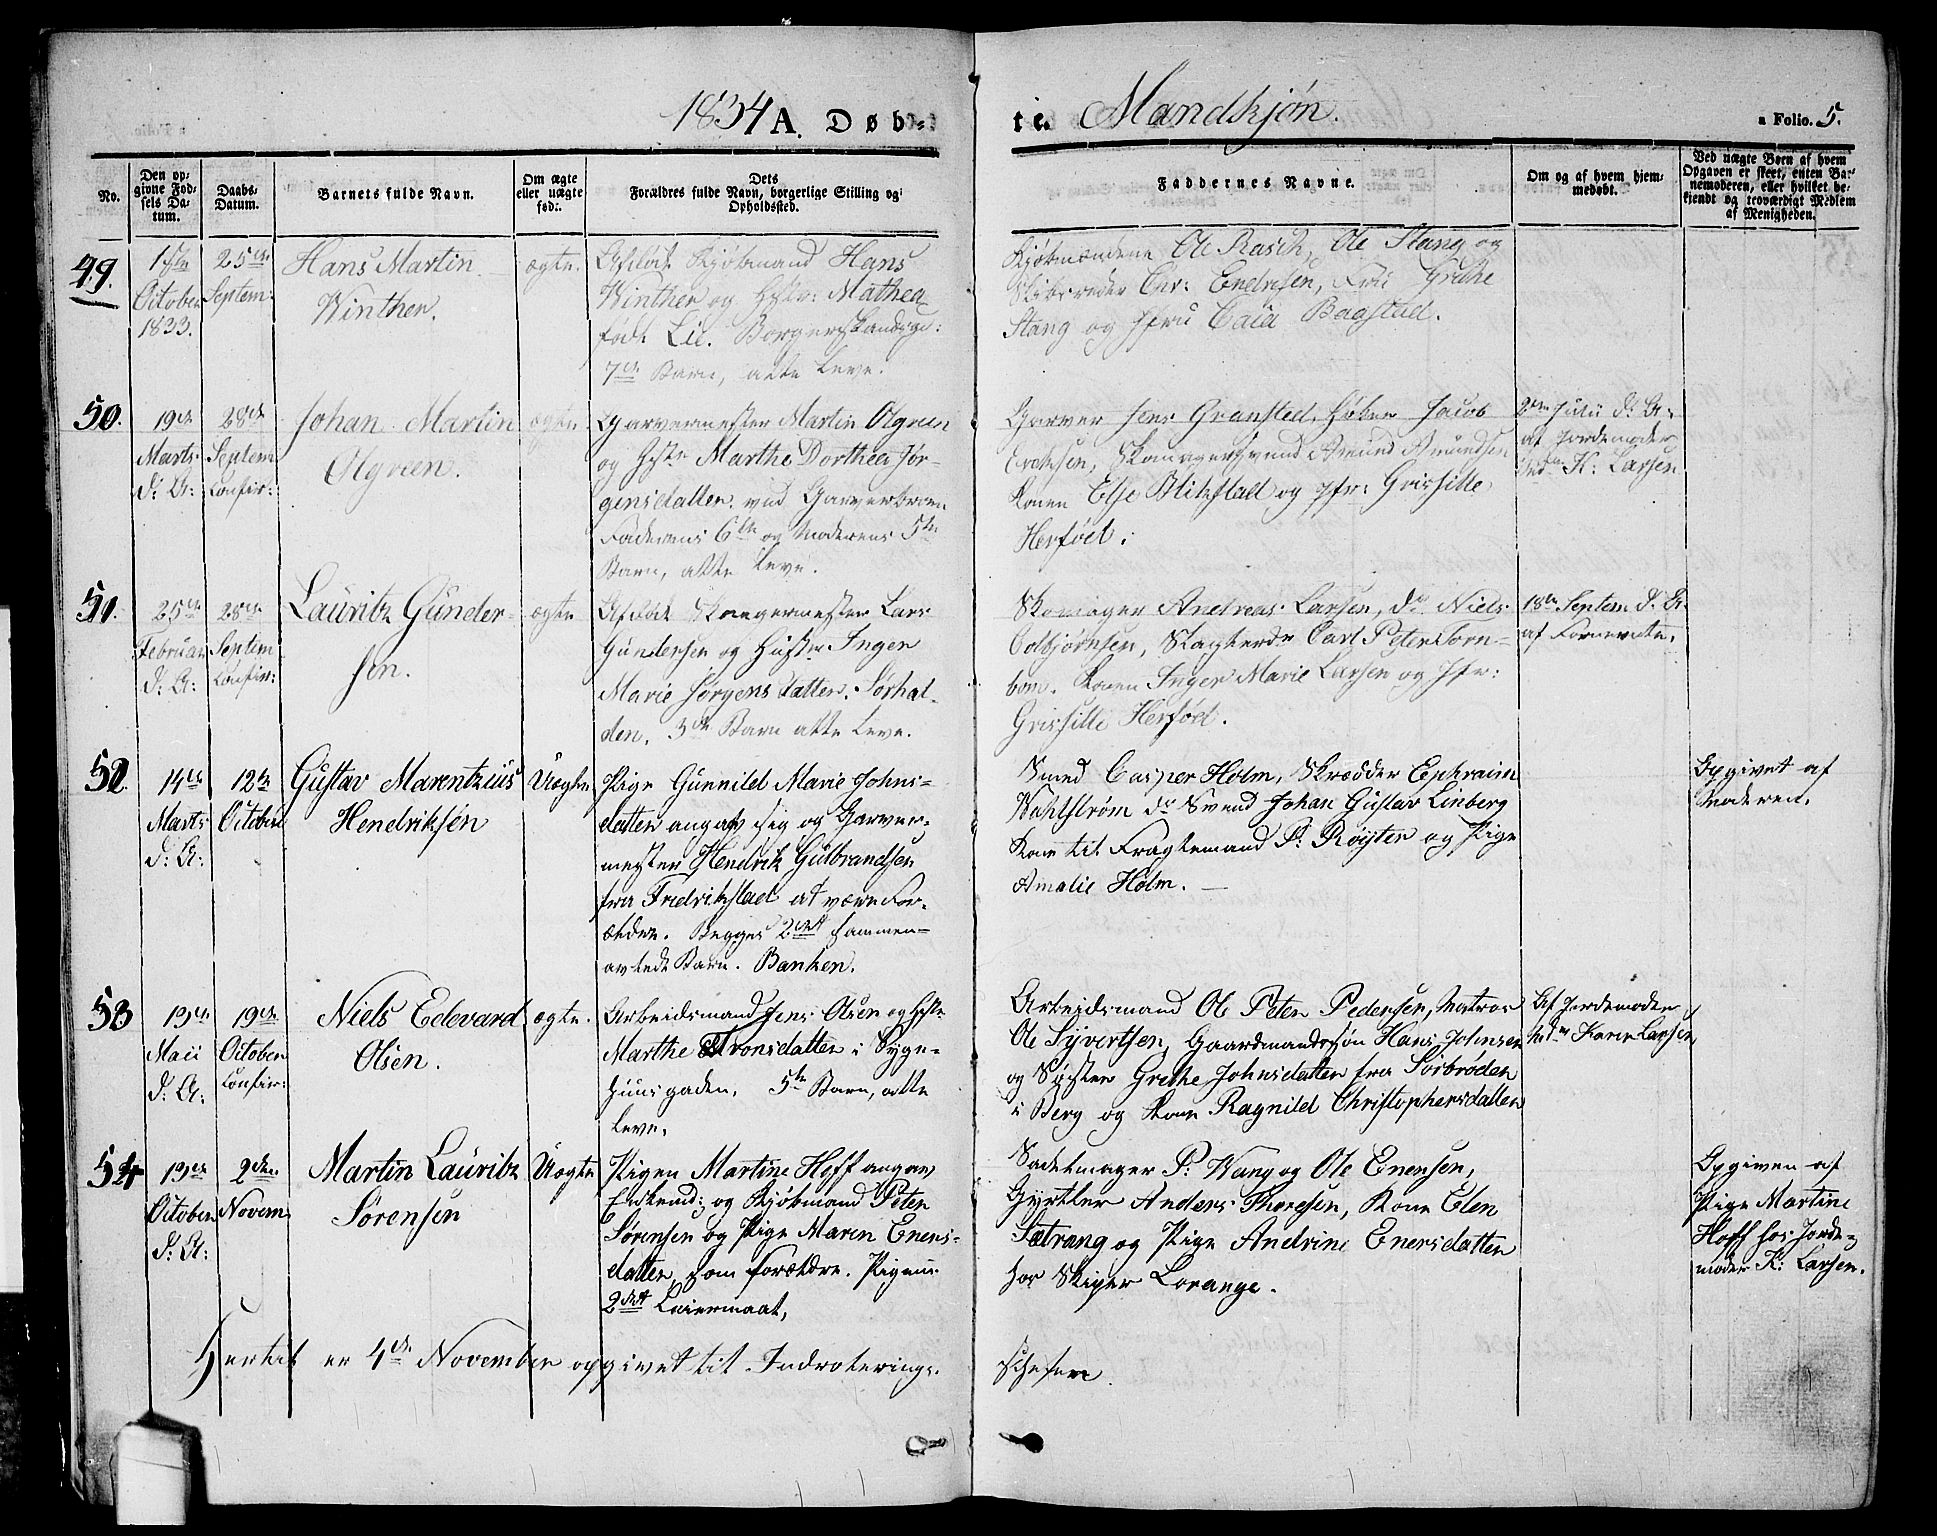 1834 A. Døb-
te. Mandkjøn.
a Folio. 5.
No.
Den op-
givne Fød-
sels Da-
tum.
Daabs-
Datum.
Barnets fulde Navn.
Om ægte
eller uægte
fød:.
Dets
Forældres fulde Navn, borgerlige Stilling og
Opholdssted.
Faddernes Navne.
Om og af hvem hjem-
medøbt.
Ved uægte Børn af hvem
Opgaven er skeet, enten Bar-
nemoderen, eller hvilket be-
kjendt og troværdigt Medlem
af Menigheden.
49.
1ste
October
1833.
25de
Septem:
Hans Martin
Winther.
ægte.
Afdøde Kjøbmand Hans
Winther og Hstr: Mathea
født Lie.
7de Barn, alle leve.
Kjøbmændene Ole Rasch, Ole Stang og
Skibsreder Chr: Endresen, Fru Grethe
Stang og Jfru Caia Baastad.
50.
19de
Marts
d: A:
28de
Septem
Confir:
Johan Martin
Olgreen.
ægte.
Garvermester Martin Olgreen
og Hstr Marthe Dorthea Jør-
gensdatter. ved Garverbroen
Faderens 6te og Moderens 5te
Barn, alle leve.
Garver Jens Gransted, Høker Jacob
Ericksen, Amund Amundsen
Konen Else Blikstad og Jfr: Grissille
Herføel.
2den Julii d: A:
af Jordemoder
Md: K: Larsen
51.
25de
Februar
d: A:
28de
Septem
Confir:
Lauritz Gunder-
sen.
ægte
Afdøde Lars
Gundersen og Hustr Inger
Marie Jørgensdatter. Sørhal-
den. 3de Barn alle leve.
Skomager Andreas Larsen, do Niels
Odbjørnsen, Carl Peter Torn-
bom. Konen Inger Marie Larsen og Jfr:
Grissille Herføel.
18de Septem d. A.
af
52.
14de
Marts
d: A:
12te
October
Gustav Marentzius
Hendriksen
Uægte
Pige Gunnild Marie Johns-
datter angav sig og Garver-
mester Hendrik Gulbrandsen
fra Fredrikstad at være For-
ældre. Begges 2det sammen-
avlede Barn. Banken.
Smed Casper Holm, Skrædder Ephraim
Wahlstrøm do Svend Johan Gustav Linberg
Kone til Fragtemand P: Røyster og Pige
Amalie Holm.
Opgivet af
Moderen.
53
19de
Maii
d: A:
19de
October
Confir:
Niels Edevard
Olsen.
ægte.
Arbeidsmand Jens Olsen og Hstr
Marthe Tronsdatter i Syge-
huusgaden. 5te Barn, alle
leve.
Arbeidsmand Ole Peter Pedersen, Matros
Ole Syvertsen, Gaardmandssøn Hans Johnsen
og Søster Grethe Johnsdatter fra Sørbrøden
i Berg og Kone Ragnild Christophersdatter
Af Jordemoder
Mdm Karen Larsen
54
19de
October
d: A:
2den
Novem
Martin Lauritz
Sørensen
Uægte
Pigen Martine Hoff angav
og Kjøbmand Peter
Sørensen og Pige Maren Eners-
datter, som Forældre. Pigens
2det Leiermaal,
Sadelmager P: Wang og Ole Enersen,
Gyrtler Anders Thoresen, Kone Elen
Sætrang og Pige Andrine Enersdatter
hos Skiper Lorange.
Opgiven af
Pige Martine
Hoff hos Jorde-
moder K: Larsen.
Hertil er 4de November opgivet til Indrolerings-
Chefen.